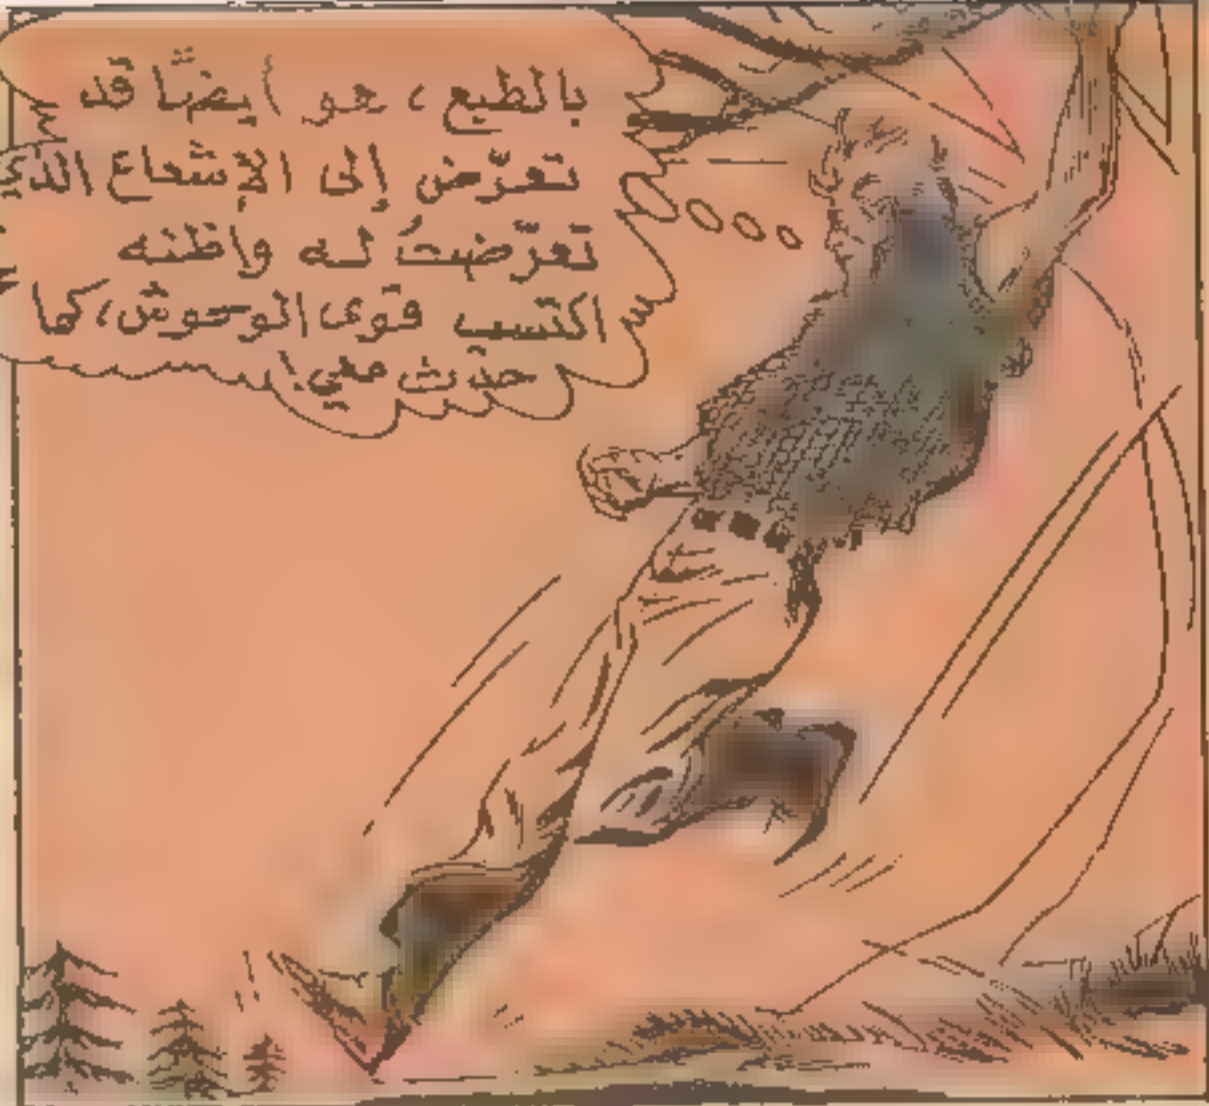 بالطبع، هو أيضًا قد
تعرّض إلى الإشعاع الذي
تعرّضتُ له واظنه
اكتسب قوى الوحوش، كما
حدث معي!